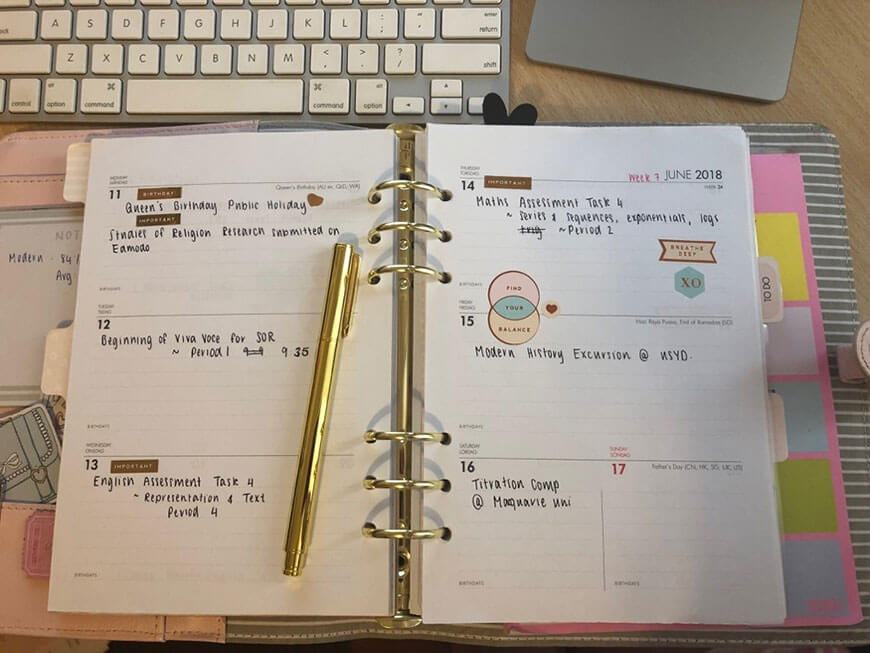 A S D F G H J K L : ; " ' enter return
Z X C V B N M < , > . ? / shift
control alt option ⌘ command ⌘ command alt option
MONDAY
MÅNDAG
11 BIRTHDAY Queen's Birthday (AU ex. QLD, WA)
Queen's Birthday Public Holiday
IMPORTANT
Studies of Religion Research submitted on
Edmodo
BIRTHDAYS
TUESDAY
TISDAG
12
Beginning of Viva Voce for SOR
~ Period 1 9 35
BIRTHDAYS
WEDNESDAY
ONSDAG
13 IMPORTANT
English Assessment Task 4
~ Representation & Text
Period 4
BIRTHDAYS
NOT
Modern - 84/
Avg
THURSDAY
TORSDAG
14 IMPORTANT Week 7 JUNE 2018
WEEK 24
Maths Assessment Task 4
~ Series & Sequences, exponentials, logs
trig ~ Period 2
BREATHE
DEEP
XO
TO DO
BIRTHDAYS
FIND
YOUR
BALANCE
FRIDAY
FREDAG
15 Hari Raya Puasa, End of Ramadan (SG)
Modern History Excursion @ USYD.
BIRTHDAYS
SATURDAY
LÖRDAG
16
Titration Comp
@ Macquarie Uni
BIRTHDAYS
SUNDAY
SÖNDAG
17 Father's Day (CN, HK, SG, UK, US)
BIRTHDAYS